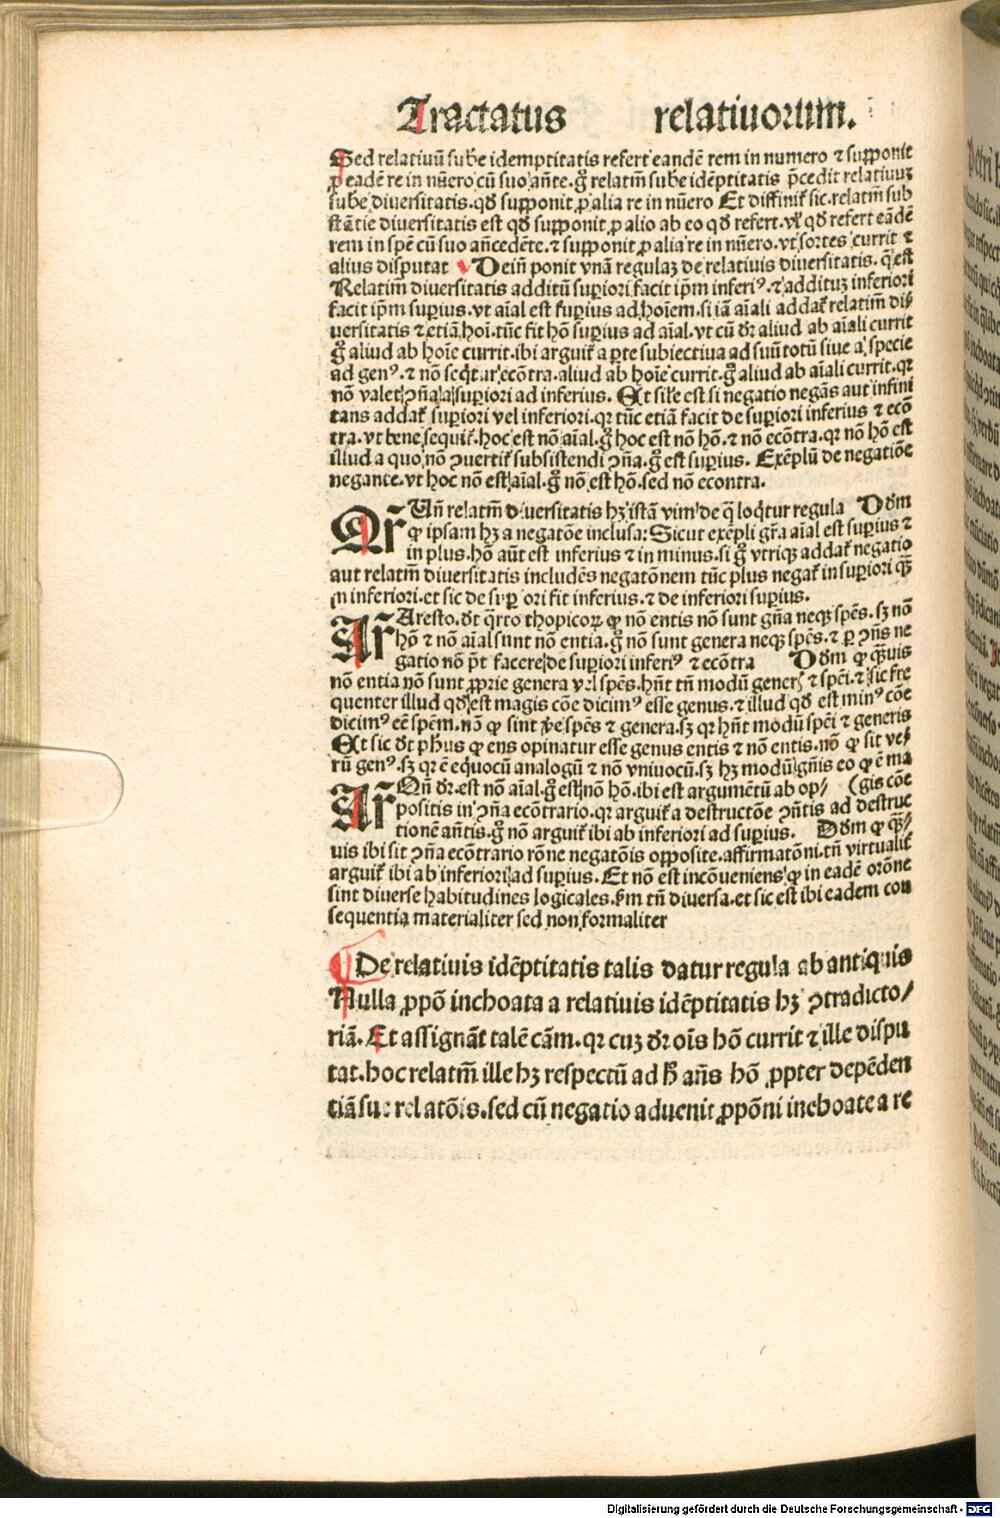 Tractatus relatiuorum.
Sed relatiuū sube idemptitatis refert eandē rem in numero ⁊ supponit
ꝓ eadē re in nūero cū suo añte. gͦ relatm̄ sube idēptitatis p̄cedit relatiuuꝫ
sube diuersitatis. qđ supponit ꝓ alia re in nūero Et diffinit̃ sic. relatm̄ sub
stātie diuersitatis est qđ supponit ꝓ alio ab eo qđ refert. vl̓ qđ refert eādē
rem in spē cū suo añcedēte. ⁊ supponit ꝓ alia re in nūero. vt sortes currit ⁊
alius disputat Dein̄ ponit vnā regulaꝫ de relatiuis diuersitatis. q̄ est
Relatim̄ diuersitatis additū suꝑiori facit ip̄m inferiꝰ. ⁊ additūꝫ inferiori
facit ip̄m suꝑius. vt aīal est suꝑius ad hoīem. si iā aīali addat̃ relatim̄ di
uersitatis ⁊ etiā hoī. tūc fit hō suꝑius ad aīal. vt cū dr̄ aliud ab aīali currit
gͦ aliud ab hoīe currit. ibi arguit̃ a ꝑte subiectiua ad suū totū siue a specie
ad genꝰ. ⁊ nō seq̄tur ecōtra. aliud ab hoīe currit. gͦ aliud ab aīali currit. qꝛ
nō valet ꝯn̄a a suꝑiori ad inferius. Et sil̓e est si negatio negās aut infini
tans addat̃ suꝑiori vel inferiori. qꝛ tūc etiā facit de suꝑiori inferius ⁊ ecō
tra. vt bene sequit̃. hoc est nō aīal. gͦ hoc est nō hō. ⁊ nō ecōtra. qꝛ nō hō est
illud a quo nō ꝯuertit̃ subsistendi ꝯn̄a. gͦ est suꝑius. Exēplū de negatiōe
negante. vt hoc nō est aīal. gͦ nō est hō. sed nō econtra.
Ar̄ Un̄ relatm̄ diuersitatis hꝫ istā vim de q̄ loq̄tur regula Dōm
ꝙ ipsam hꝫ a negatōe inclusa: Sicut exēpli gr̄a aīal est suꝑius ⁊
in plus. hō aūt est inferius ⁊ in minus. si gͦ vtriqꝫ addat̃ negatio
aut relatm̄ diuersitatis includēs negatōnem tūc plus negat̃ in suꝑiori qꝫ̄
in inferiori. et sic de suꝑiori fit inferius. ⁊ de inferiori suꝑius.
Ar̄ Aresto. dt̄ q̄rto thopicoꝝ ꝙ nō entis nō sunt gn̄a neqꝫ spēs. sꝫ nō
hō ⁊ nō aīal sunt nō entia. gͦ nō sunt genera neqꝫ spēs. ⁊ ꝑ ꝯn̄s ne
gatio nō p̄t facere de suꝑiori inferiꝰ ⁊ ecōtra Dōm ꝙ qꝫ̄uis
nō entia nō sunt ꝓprie genera vel spēs. hn̄t tn̄ modū generꝭ ⁊ spēi. ⁊ sic fre
quenter illud qđ est magis cōe dicimꝰ esse genus. ⁊ illud qđ est minꝰ cōe
dicimꝰ eē spēm. nō ꝙ sint ꝟe spēs ⁊ genera. sꝫ qꝛ hn̄t modū spēi ⁊ generis
Et sic dt̄ phūs ꝙ ens opinatur esse genus entis ⁊ nō entis. nō ꝙ sit ve/
rū genꝰ. sꝫ qꝛ ē eq̄uocū analogū ⁊ nō vniuocū. sꝫ hꝫ modū gn̄is eo ꝙ ē ma
Ar̄ Qn̄ dr̄. est nō aīal. gͦ est nō hō. ibi est argumētū ab op/ (gis cōe
positis in ꝯn̄a ecōtrario. qꝛ arguit̃ a destructōe ꝯn̄tis ad destruc
tionē añtis. gͦ nō arguit̃ ibi ab inferiori ad suꝑius. Dōm ꝙ qꝫ̄/
uis ibi sit ꝯn̄a ecōtrario rōne negatōis opposite. affirmatōni. tn̄ virtualit̃
arguit̃ ibi ab inferiori ad suꝑius. Et nō est incōueniens ꝙ in eadē orōne
sint diuerse habitudines logicales. ẜm tn̄ diuersa. et sic est ibi eadem con
sequentia materialiter sed non formaliter
De relatiuis idēptitatis talis datur regula ab antiquis
Nulla ꝓpō inchoata a relatiuis idēptitatis hꝫ ꝯtradicto/
riā. Et assignāt talē cām. qꝛ cuꝫ dr̄ oīs hō currit ⁊ ille dispu
tat. hoc relatm̄ ille hꝫ respectū ad h̄ añs hō ꝓpter depēden
tiā sue relatōis. sed cū negatio aduenit ꝓpōni inchoate a re